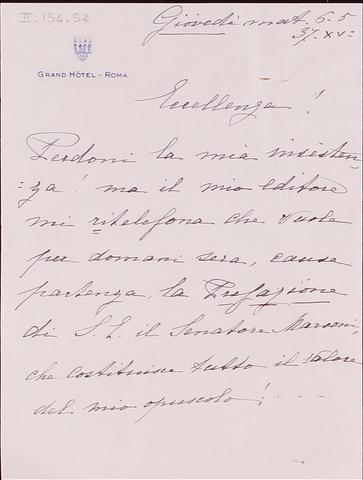 II. 156.52
Giovedì mat. 6-5
37-XV°
GRAND HÔTEL - ROMA
Eccellenza!
Perdoni la mia insisten-
=za! ma il mio editore
mi ritelefona che vuole
per domani sera, causa
partenza, la Prefazione
di S. E. il Senatore Marconi,
che costituisce tutto il valore
del mio opuscolo! . . .